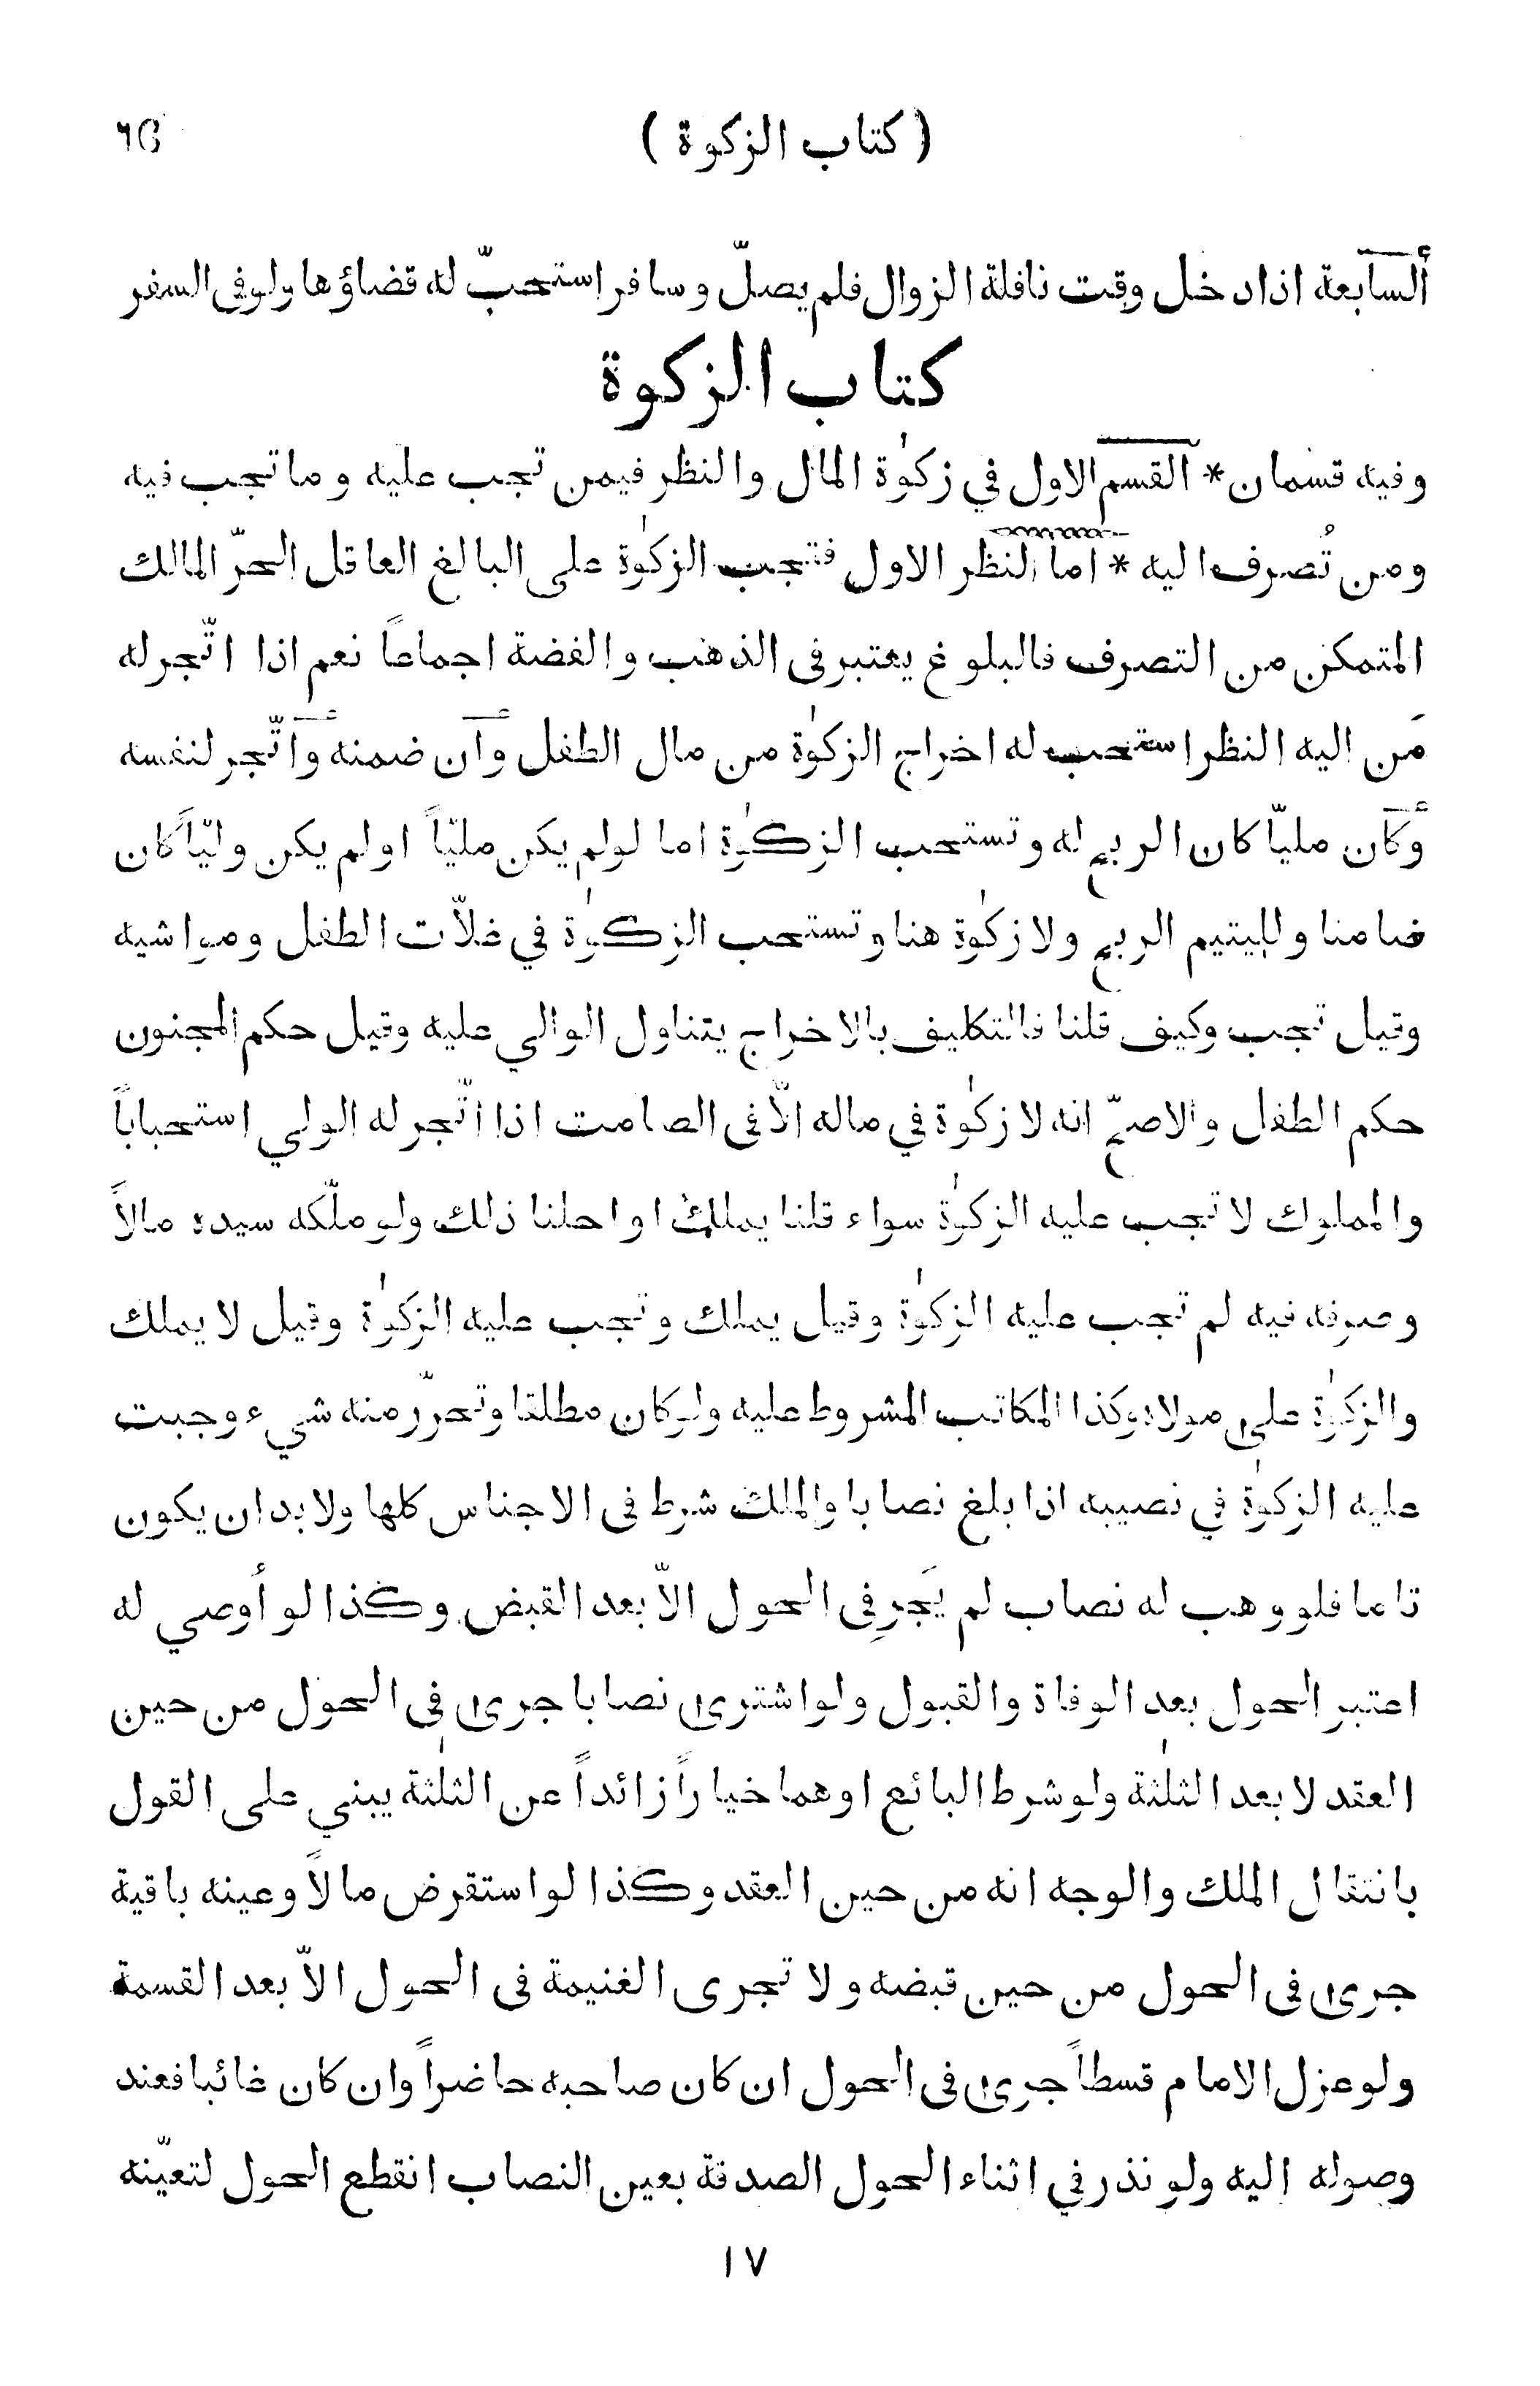 ( كتاب الزكوة ) ٦٥
ألسابعة اذا دخل وقت نافلة الزوال فلم يصلّ وسافر استحبّ له قضاؤها ولو فى السفر
كتاب الزكوة
وفيه قسمان * القسم الاول في زكوٰة المال والنظر فيمن تجب عليه وما تجب فيه
ومن تُصرف اليه * اما النظر الاول فتجب الزكوٰة على البالغ العاقل الحرّ المالك
المتمكن من التصرف فالبلوغ يعتبر فى الذهب والفضة اجماعاً نعم اذا اتّجر له
مَن اليه النظر استحب له اخراج الزكوٰة من مال الطفل وأن ضمنه وأتّجر لنفسه
وكأن مليّا كان الربح له وتستحب الزكوٰة اما لو لم يكن مليّاً او لم يكن وليّاً كان
ضامنا ولليتيم الربح ولا زكوٰة هنا وتستحب الزكوٰة في غلاّت الطفل ومواشيه
وقيل تجب وكيف قلنا فالتكليف بالاخراج يتناول الوالي عليه وقيل حكم المجنون
حكم الطفل والاصحّ انه لا زكوٰة في ماله الاّ فى الصامت اذا اتّجر له الولي استحباباً
والمملوك لا تجب عليه الزكوٰة سواء قلنا يملك او احلنا ذلك ولو ملّكه سيده مالاً
وصرفه فيه لم تجب عليه الزكوٰة وقيل يملك وتجب عليه الزكوٰة وقيل لا يملك
والزكوٰة على مولاه وكذا المكاتب المشروط عليه ولو كان مطلقا وتحرّر منه شيء وجبت
عليه الزكوٰة في نصيبه اذا بلغ نصابا والملك شرط فى الاجناس كلها ولا بد ان يكون
تاما فلو وهب له نصاب لم يَجرِ فى الحول الاّ بعد القبض وكذا لو أوصي له
اعتبر الحول بعد الوفاة والقبول ولو اشترى نصابا جرى فى الحول من حين
العقد لا بعد الثلٰثة ولو شرط البائع او هما خياراً زائداً عن الثلٰثة يبني على القول
بانتقال الملك والوجه انه من حين العقد وكذا لو استقرض مالاً وعينه باقية
جرى فى الحول من حين قبضه ولا تجرى الغنيمة فى الحول الاّ بعد القسمة
ولو عزل الامام قسطاً جرى فى الحول ان كان صاحبه حاضراً وان كان غائبا فعند
وصوله اليه ولو نذر في اثناء الحول الصدقة بعين النصاب انقطع الحول لتعيّنه
١٧